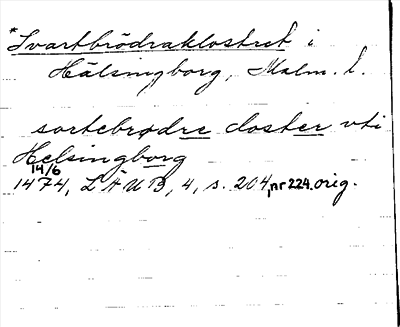 *Svartbrödraklostret i
Hälsingborg, Malm. l.
sortebrødre closter vti
Helsingborg
14/6
1474, LÄUB, 4, s. 204, nr 224. orig.